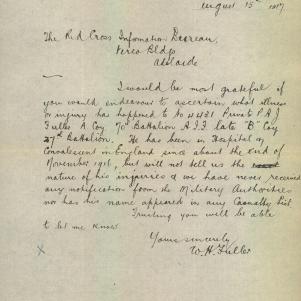 August 15th 1917
The Red Cross Information Bureau,
Verco Bldgs
Adelaide
I would be most grateful if
you would endeavour to ascertain what illness
or injury has happened to No 4431 Private P.A.J
Fuller A Coy 70th Battalion A.I.F. late "B" Coy
27th Battalion. He has been in Hospital or
Convalescent in England since about the end of
November 1916, but will not tell us the
nature of his injuries & we have never received
any notification from the Military Authorities
nor has his name appeared in any Casualty List
Trusting you will be able
to let me know
Yours sincerely
W.H. Fuller